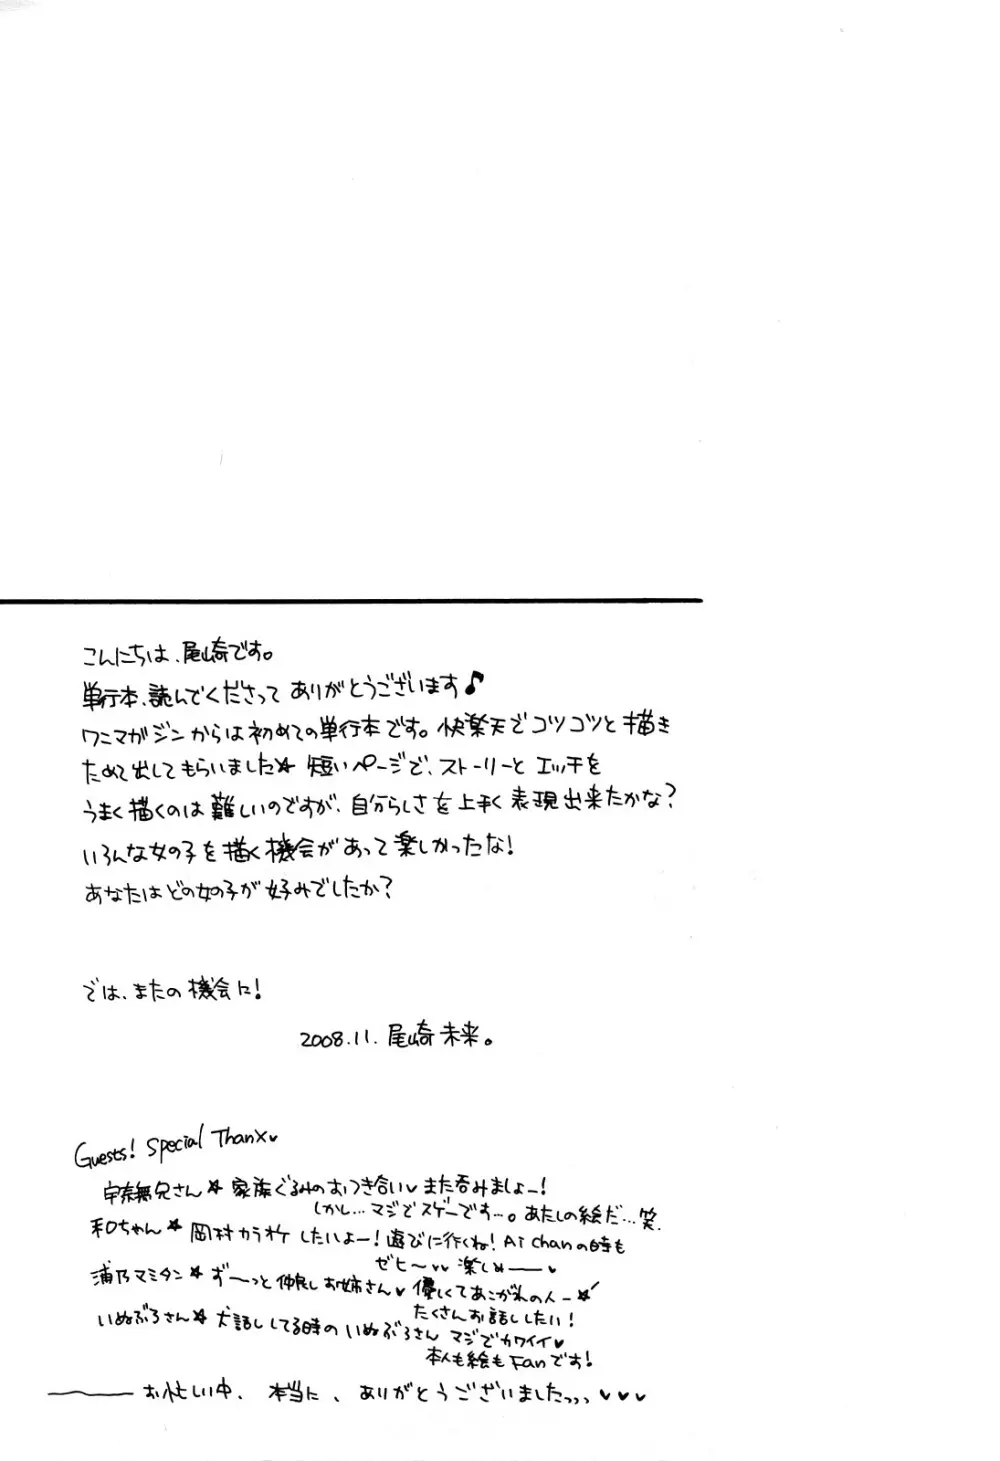 こんにちは、尾崎です。
単行本、読んでくださって ありがとうございます♪
ワニマガジンからは初めての単行本です。快楽天でコツコツと描き
ためて出してもらいました☆ 短いページで、ストーリーと エッチを
うまく描くのは難しいのですが、自分らしさを上手く表現出来たかな？
いろんな女の子を描く機会があって楽しかったな！
あなたはどの女の子が好みでしたか？
では、またの機会に！
2008.11. 尾崎未来。
Guests! Special Thanx♥
宇奈無兄さん☆家族ぐるみのおつき合い♥また呑みましょー！
しかし…マジでスゲーです…。あたしの絵だ…笑.
和ちゃん☆岡村カラオケしたいよー！遊びに行くね！Ai chanの時も
ゼヒ〜♥♥ 楽しめ――♥
浦乃マミタン☆ず〜っと仲良しお姉さん♥優しくてあこがれの人ー☆
たくさんお話ししたい！
いぬぶろさん☆犬話ししてる時のいぬぶろさん マジでカワイイ♥
本人も絵もFanです！
お忙しい中、本当に、ありがとうございましたっっっ♥♥♥